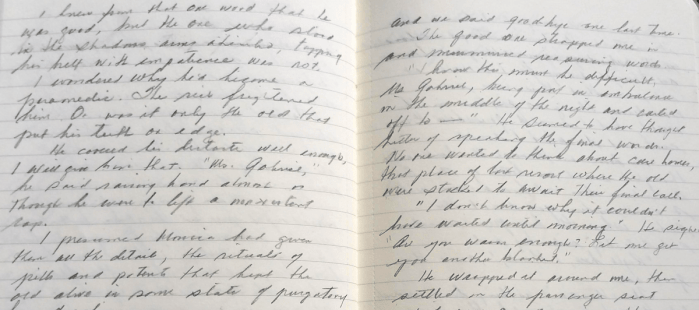 I knew from that one word that he
was good, but the one who stood
in the shadows, arms akimbo, tapping
his heel with impatience was not.
I wondered why he'd become a
paramedic. The sick frightened
him. Or was it only the old that
put his teeth on edge.
He covered his distaste well enough,
I will give him that. "Ms. Gabriel,"
he said raising hand almost as
though he were to lift a
cap.
I presumed Monica had given
them all the details, the rituals of
pills and potents that kept the
old alive in some state of purgatory
and we said goodbye one last time.
The good one strapped me in
and murmured reassuring words
"I know this must be difficult,
Ms Gabriel, being put in ambulance
in the middle of the night and carted
off to — " He seemed to have thought
better of speaking the final words.
No one wanted to think about care homes,
that place of last resort where the old
were stacked to await their final call.
"I don't know why it couldn't
have waited until morning." He sighed
"Are you warm enough? Let me get
you another blanket."
He wrapped it around me, then
settled in the passenger seat